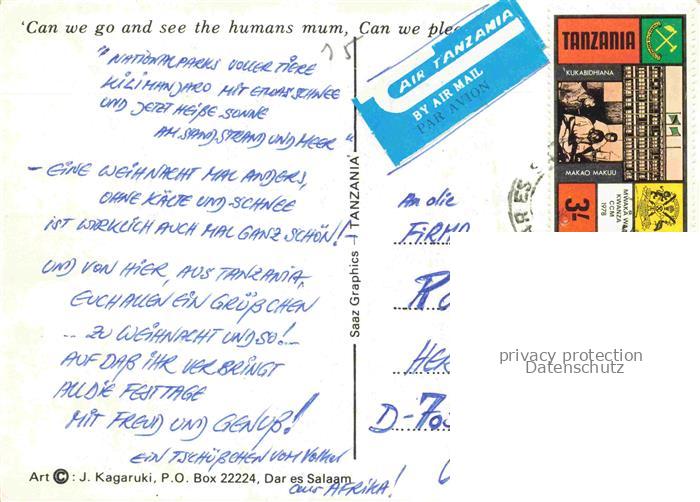 'Can we go and see the humans mum, Can we plea
15
"NATIONALPARKS VOLLER TIERE
KILIMANJARO MIT ETWAS SCHNEE
UND JETZT HEIßE SONNE
AM SANDSTRAND UND MEER"
– EINE WEIHNACHT MAL ANDERS,
OHNE KÄLTE UND SCHNEE
IST WIRKLICH AUCH MAL GANZ SCHÖN! –
UND VON HIER, AUS TANZANIA,
EUCH ALLEN EIN GRÜßCHEN
... ZU WEIHNACHT UND SO! –
AUF DAß IHR VERBRINGT
ALL DIE FESTTAGE
MIT FREUD UND GENUß!
EIN TSCHÜßCHEN VOM Volker
aus AFRIKA!
Art © : J. Kagaruki, P.O. Box 22224, Dar es Salaam
Saaz Graphics — TANZANIA
AIR TANZANIA
BY AIR MAIL
PAR AVION
TANZANIA
KUKABIDHIANA
MAKAO MAKUU
3/-
MWAKA WA
KWANZA
CCM
1978
AR ES
An die
FIRMA
D-70
privacy protection
Datenschutz